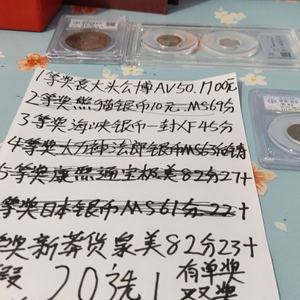 1等奖袁大头公博AV50.1700元
2等奖熊猫银币10元MS69分
3等奖海峡银币一封XF45分
4等奖大力神法郎银币MS63
5等奖康熙通宝极美82分27+
等奖日本银币MS61分22+
等奖新莽货泉美82分23+
20选1
有单奖
双奖